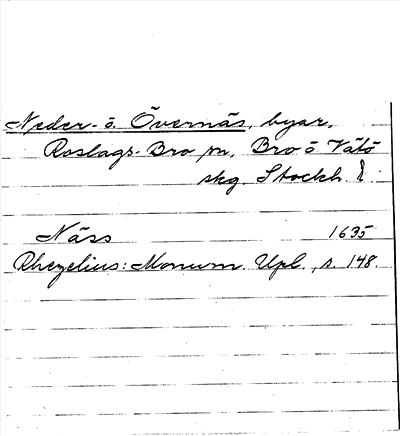 Neder- o. Övernäs, byar,
Roslags-Bro sn, Bro o Vätö
skg. Stockh. l
Näss 1635
Rhezelius: Monum. Upl., s. 148.